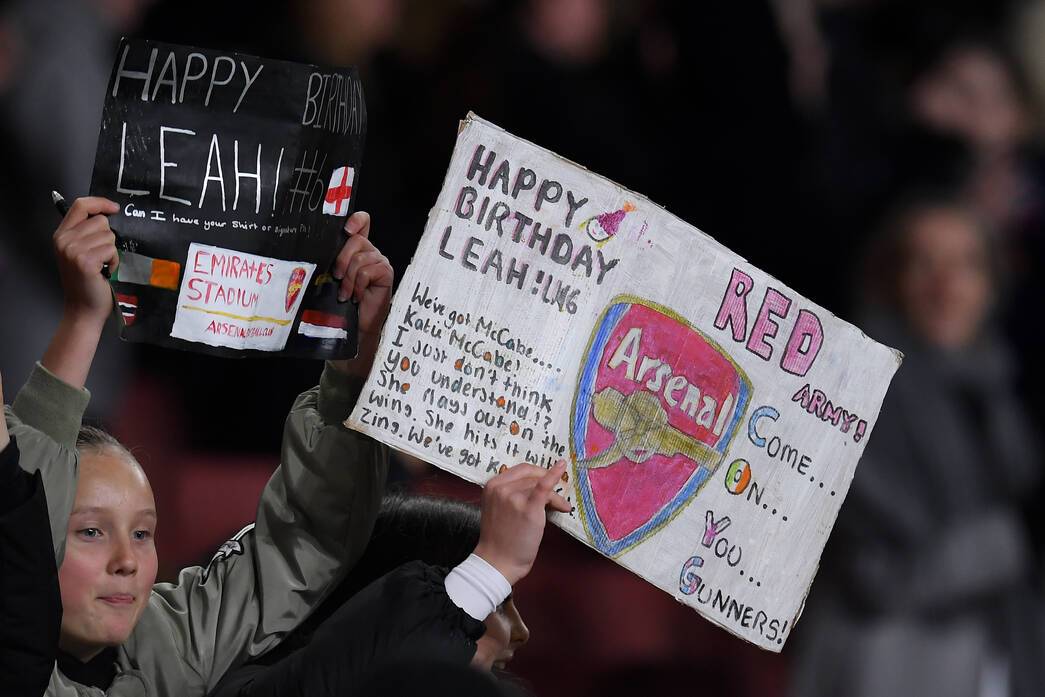 HAPPY
BIRTHDAY
LEAH! #6
Can I have your shirt or
EMIRATES
STADIUM
HAPPY
BIRTHDAY
LEAH! LW6
We've got McCabe....
Katie McCabe,
I just don't think
you understand!?
She plays out on the
wing. She hits it with
Zing. We've got
Arsenal
RED
ARMY!
Come....
ON....
You...
GUNNERS!